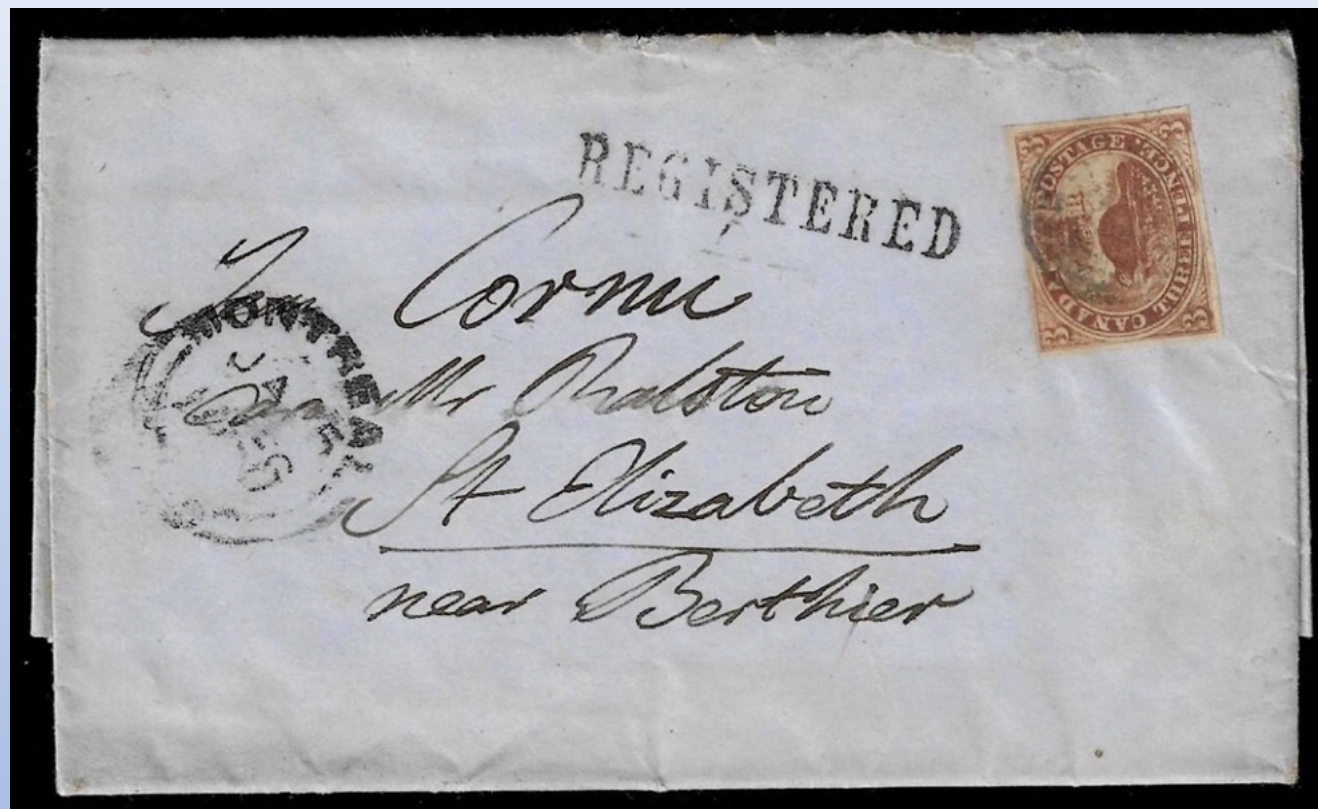 REGISTERED
3 3 3 3
CANADA POSTAGE
THREE PENCE
MONTREAL
Cornu
Mr Ralston
St Elizabeth
near Berthier